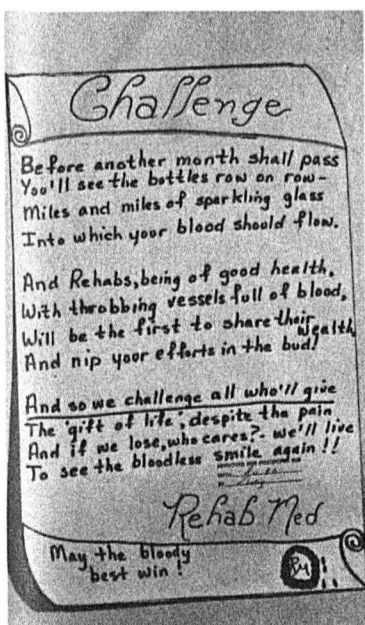 Challenge
Before another month shall pass
You'll see the bottles row on row-
Miles and miles of sparkling glass
Into which your blood should flow.
And Rehabs, being of good health,
With throbbing vessels full of blood,
Will be the first to share their wealth
And nip your efforts in the bud!
And so we challenge all who'll give
The 'gift of life', despite the pain
And if we lose, who cares?- we'll live
To see the bloodless smile again!!
Rehab Med
May the bloody
best win!
RM